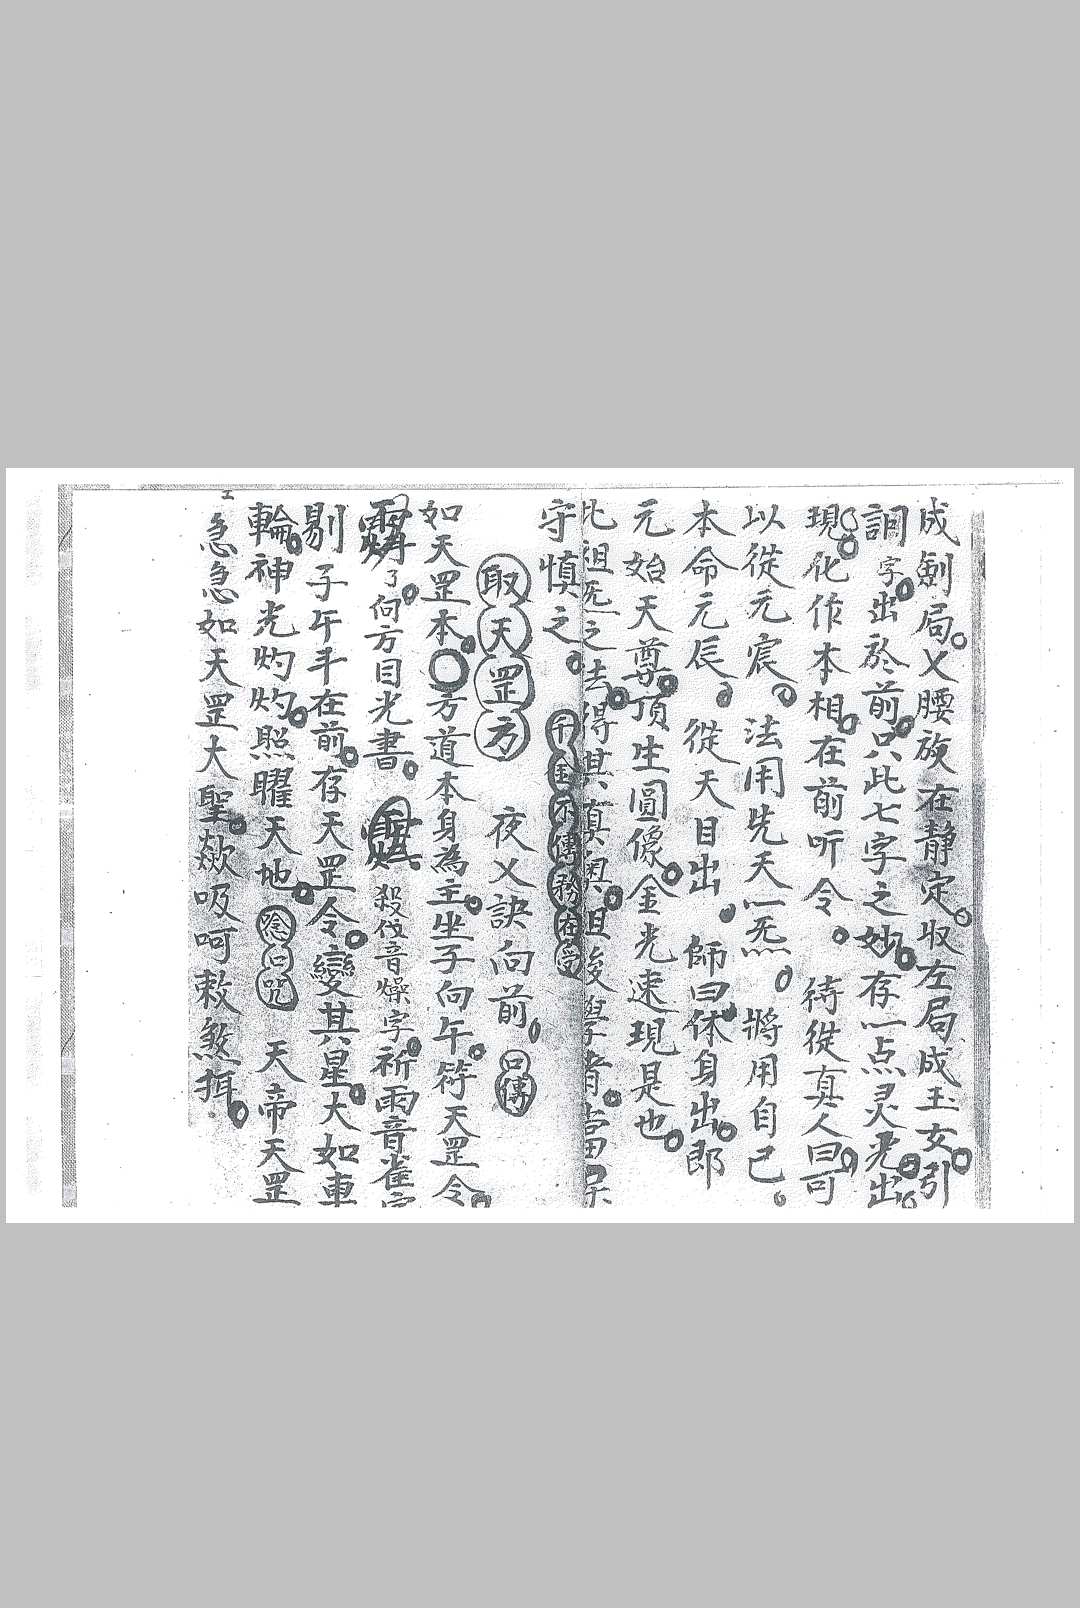 成劍局乂腰放在靜定取左局成玉女引
詞字出於前只此七字之妙存一点灵光出
現化作本相在前听令 待從真人曰可
以從元宸 法用先天一炁 將用自己
本命元辰 從天目出 師曰休身出郎
元始天尊頂生圓像金光速現是也
此祖炁之法得其真奥 後學者當
守慎之 千金不傳務在
取天罡方 夜乂訣向前 口傳
如天罡本方道本身為主坐子向午符天罡令
了何方目光書 殺伐音燥字祈雨音雀字
剔子午斗在前存天罡令變其星大如車
輪神光灼灼照曜天地 唸口咒 天帝天罡
急急如天罡大聖歘吸呵敕煞摄